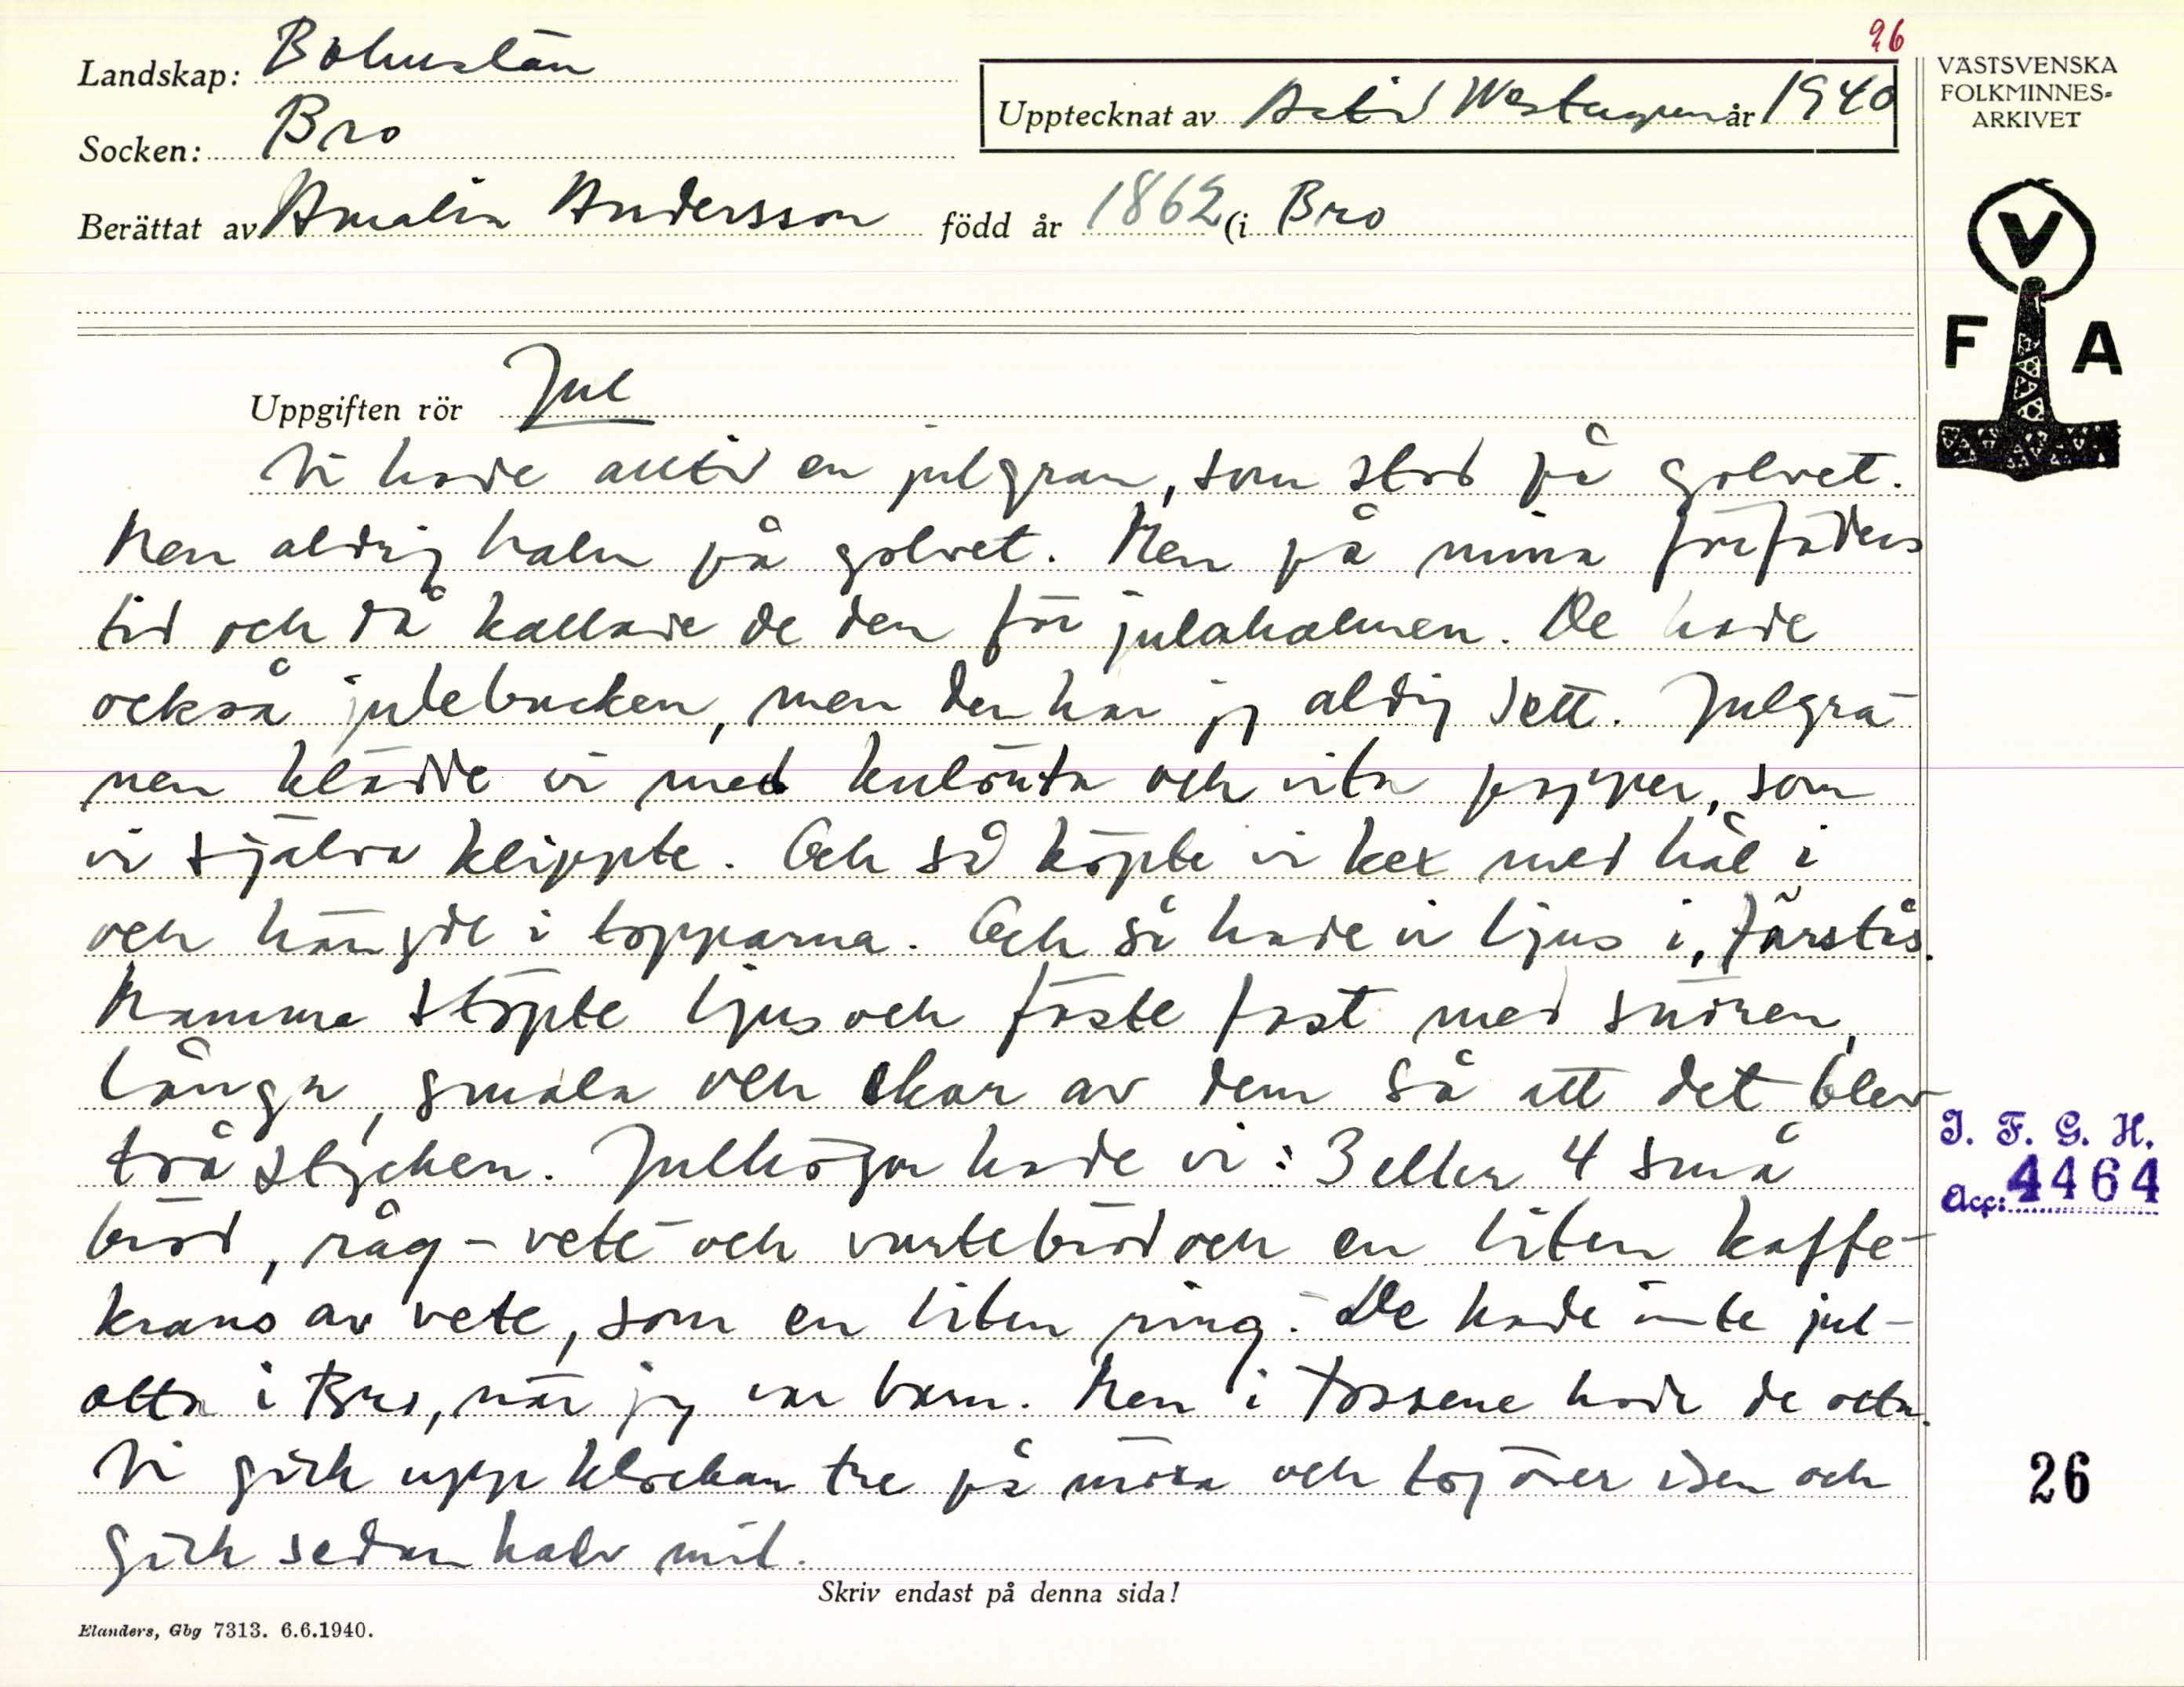 26
Landskap: Bohuslän
Socken: Bro
Upptecknat av Astrid Westergren år 1940
Berättat av Amalia Andersson född år 1862 (i Bro
VÄSTSVENSKA
FOLKMINNES-
ARKIVET
V
F A
Uppgiften rör Jul
Vi hade alltid en julgran, som stod på golvet.
Men aldrig halm på golvet. Men på mina förfäders
tid och då kallade de den för julahalmen. De hade
också julebucken, men den har jg aldrig sett. Julgra-
nen klädde vi med kulörta och vita papper, som
vi själva klippte. Och så köpte vi kex med hål i
och hängde i topparna. Och så hade vi ljus i, förstås.
Mamma stöpte ljus och fäste fast med snören,
långa, smala och skar av dem så att det blev
två stycken. Julhögar hade vi: 3 eller 4 små
bröd, råg- vete- och vörtebröd och en liten kaffe-
krans av vete, som en liten ring. De hade inte jul-
otta i Bro, när jg var barn. Men i Tossene hade de otta.
Vi gick upp klockan tre på mora och tog över isen och
gick sedan halv mil.
Skriv endast på denna sida!
Elanders, Gbg 7313. 6.6.1940.
I. F. G. H.
Acc: 4464
26